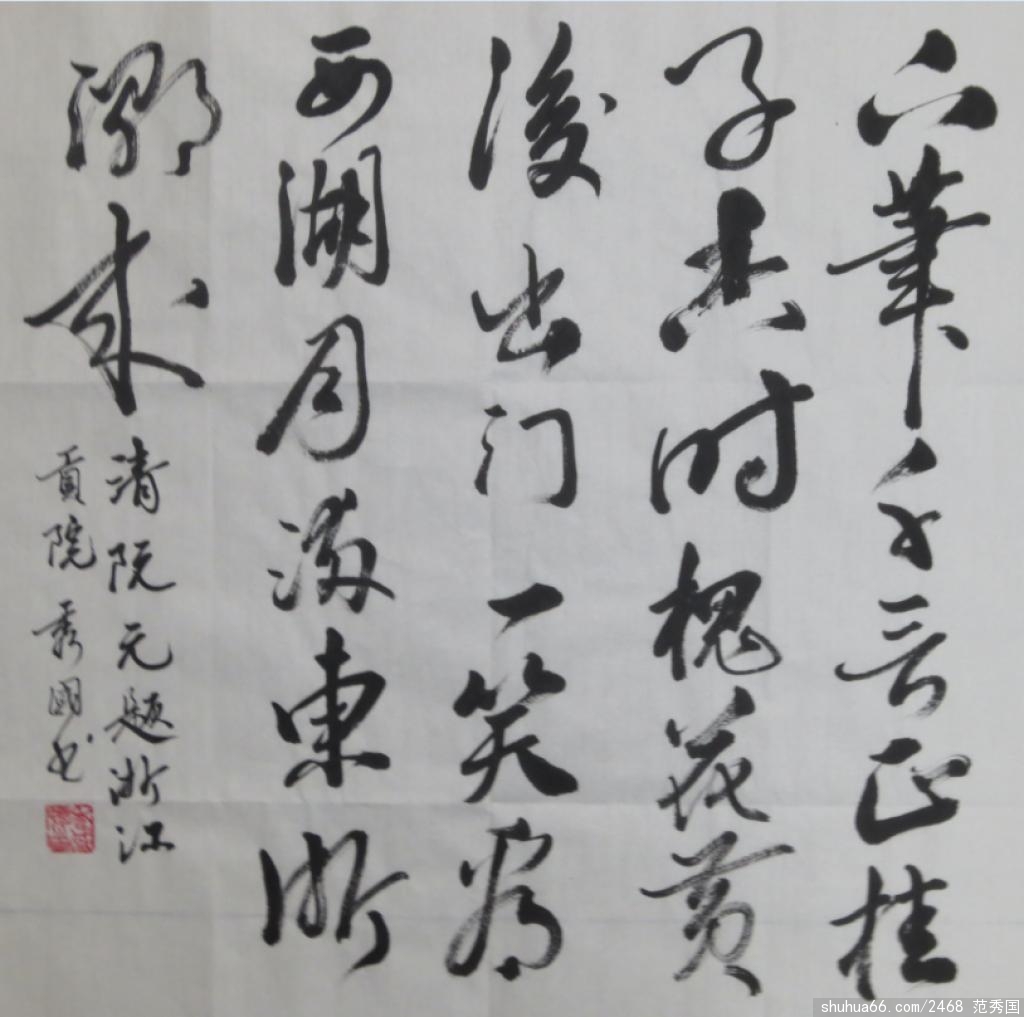 下筆千言正桂
子香时槐花黄
後出门一笑看
西湖月满東浙
潮來
清阮元题浙江
貢院秀國书
shuhua66.com/2468 范秀国